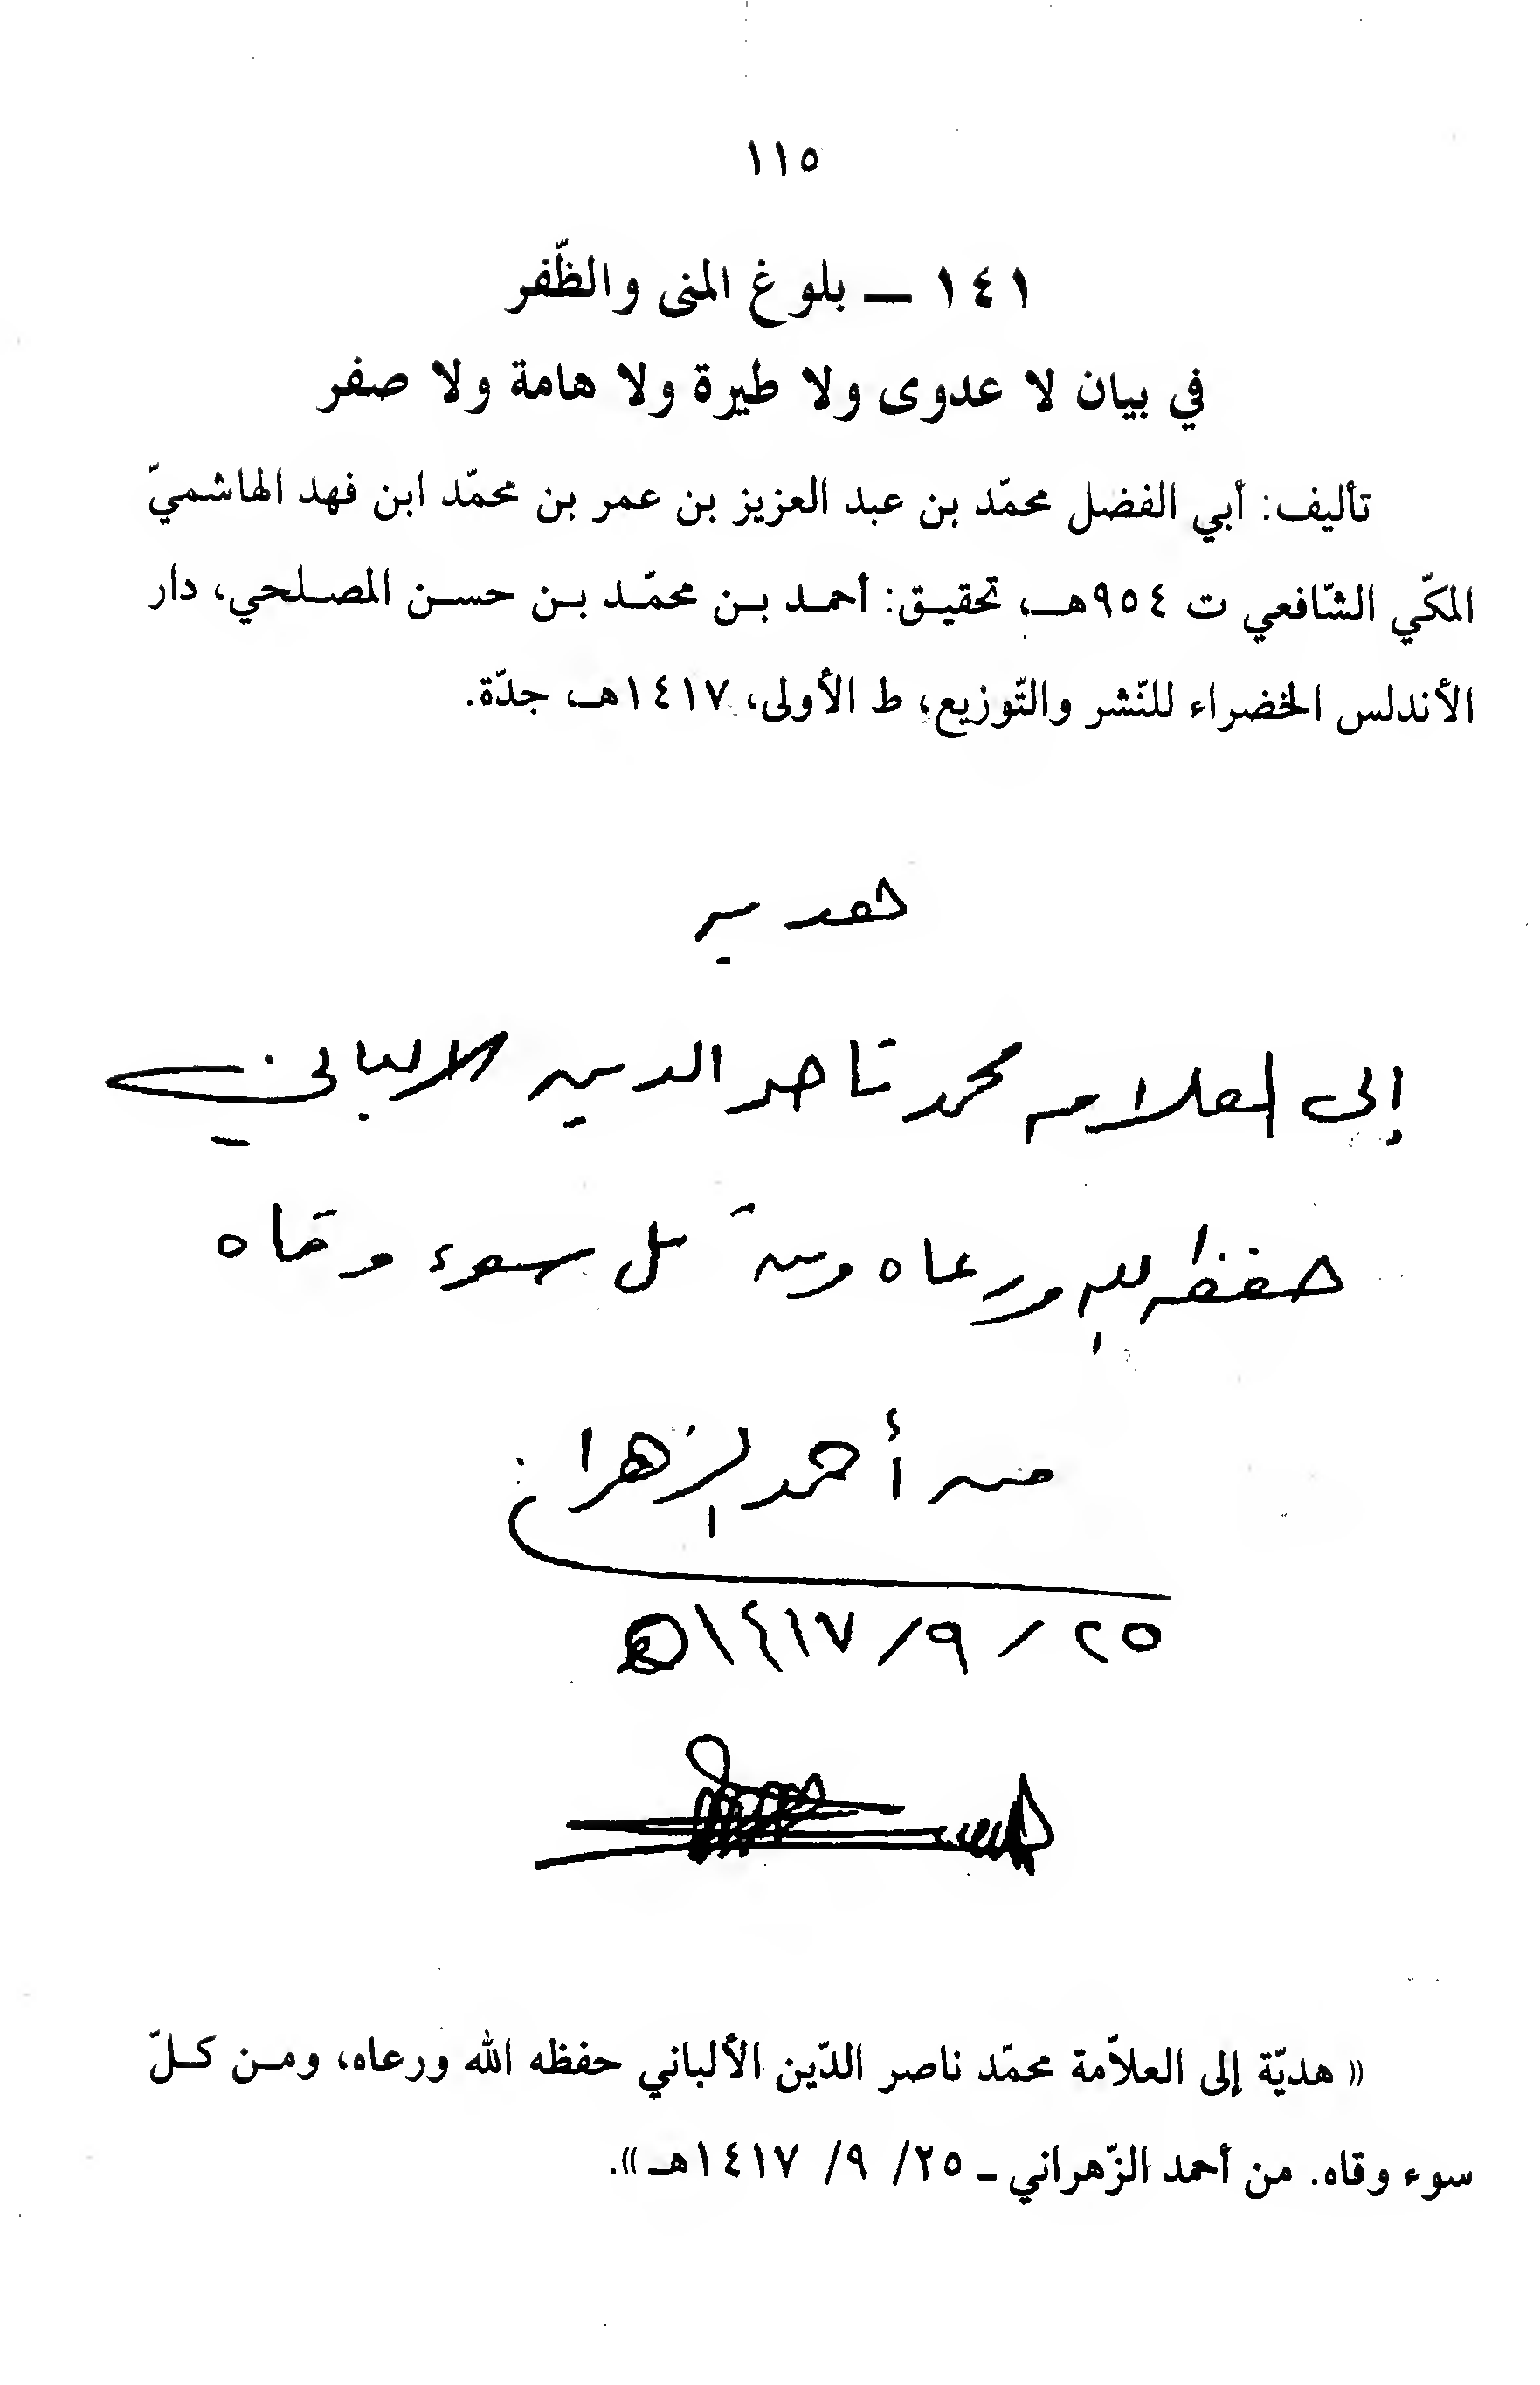 ١١٥
١٤١ ـ بلوغ المنى والظّفر
في بيان لا عدوى ولا طيرة ولا هامة ولا صفر
تأليف: أبي الفضل محمّد بن عبد العزيز بن عمر بن محمّد ابن فهد الهاشميّ
المكّي الشّافعي ت ٩٥٤هـ، تحقيق: أحمد بن محمّد بن حسن المصلحي، دار
الأندلس الخضراء للنّشر والتّوزيع، ط الأولى، ١٤١٧هـ، جدّة.
هديه
إلى العلامه محمد ناصر الدين الالباني
حفظه الله ورعاه ومن كل سوء وقاه
من أحمد الزهراني
٢٥ / ٩ / ١٤١٧ه
« هديّة إلى العلاّمة محمّد ناصر الدّين الألباني حفظه الله ورعاه، ومن كلّ
سوء وقاه. من أحمد الزّهراني ـ ٢٥/ ٩/ ١٤١٧هـ ».